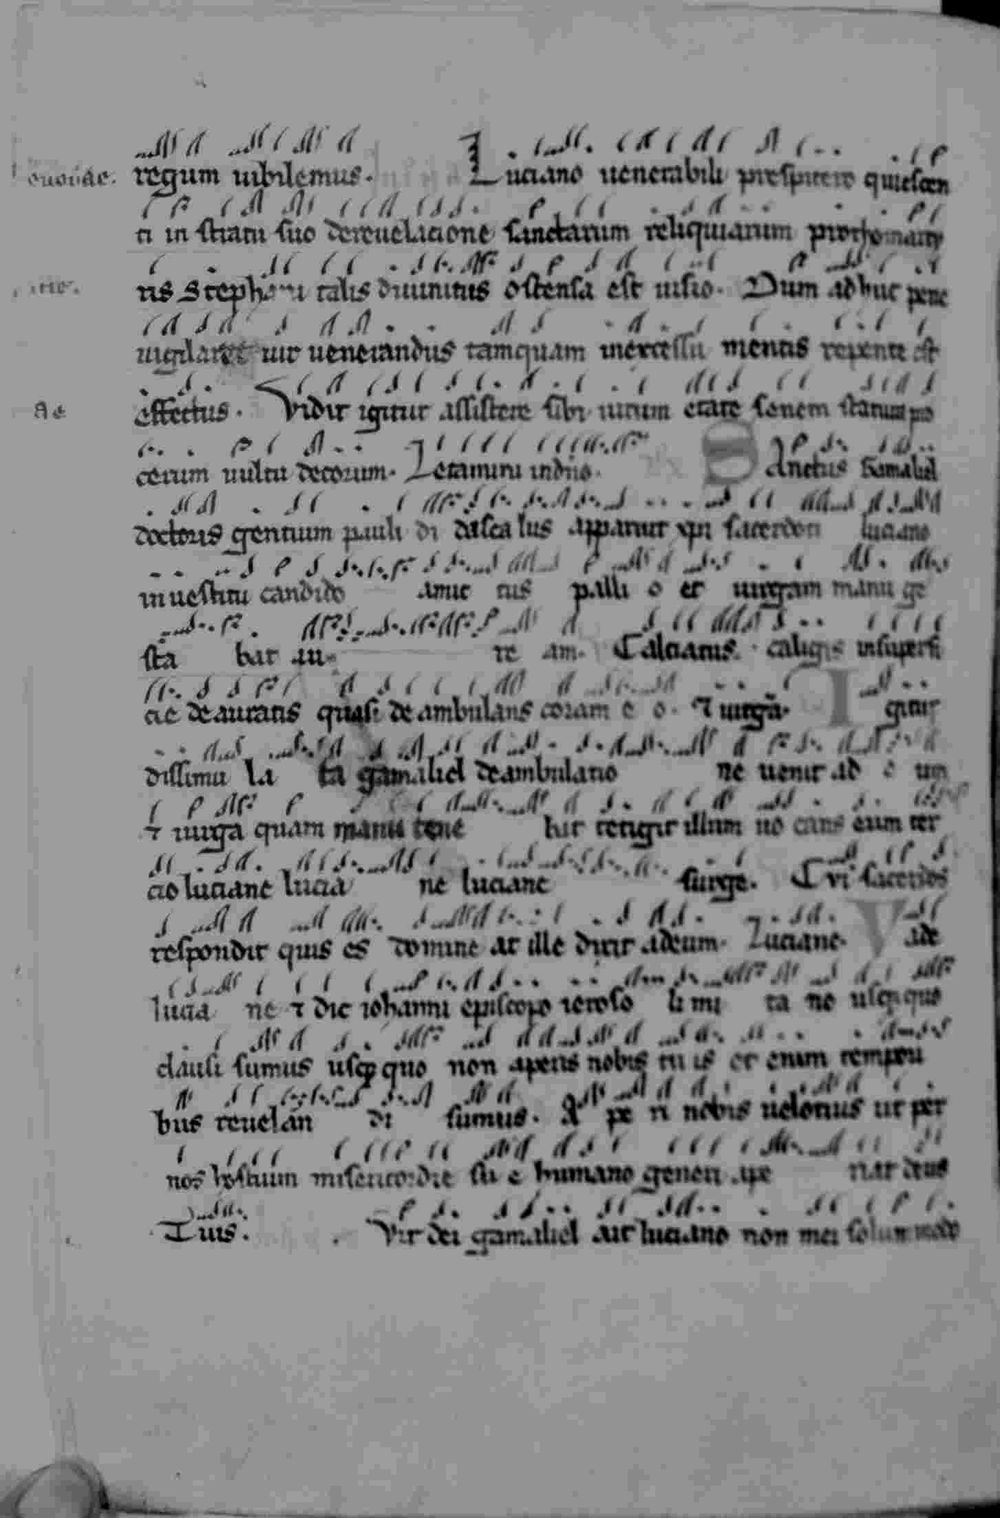 euouae. regum iubilemus. Luciano uenerabili prespitero quiescen
ti in stratu suo de reuelacione sanctarum reliquiarum prothomarty
ris Stephani talis diuinitus ostensa est uisio. Dum adhuc pene
uigilaret uir uenerandus tamquam in excessu mentis repente est
ae effectus. Vidit igitur assistere sibi uirum etate senem statura pro
cerum uultu decorum. Letamini in dno. Sanctus Gamaliel
doctoris gentium pauli di dasca lus apparuit xpi sacerdoti luciano
in uestitu candido amic tus palli o et uirgam manu ge
sta bat au re am. Calciatus caligis in superfi
cie deauratis quasi deambulans coram e o. ⁊ uirga. Igitur
dissimu la ta gamaliel deambulatio ne uenit ad e um
⁊ uirga quam manu tene bat tetigit illum uo cans eum ter
cio luciane lucia ne luciane surge. Cui sacerdos
respondit quis es domine at ille dixit ad eum. Luciane. Vade
lucia ne ⁊ dic iohanni episcopo ieroso li mi ta no usq; quo
clausi sumus usq; quo non aperis nobis tu is et enim tempori
bus reuelan di sumus. A pe ri nobis uelotius ut per
nos hostium misericordie su e humano generi ape riat deus
Tuis. Vir dei gamaliel ait luciano non mei solummodo